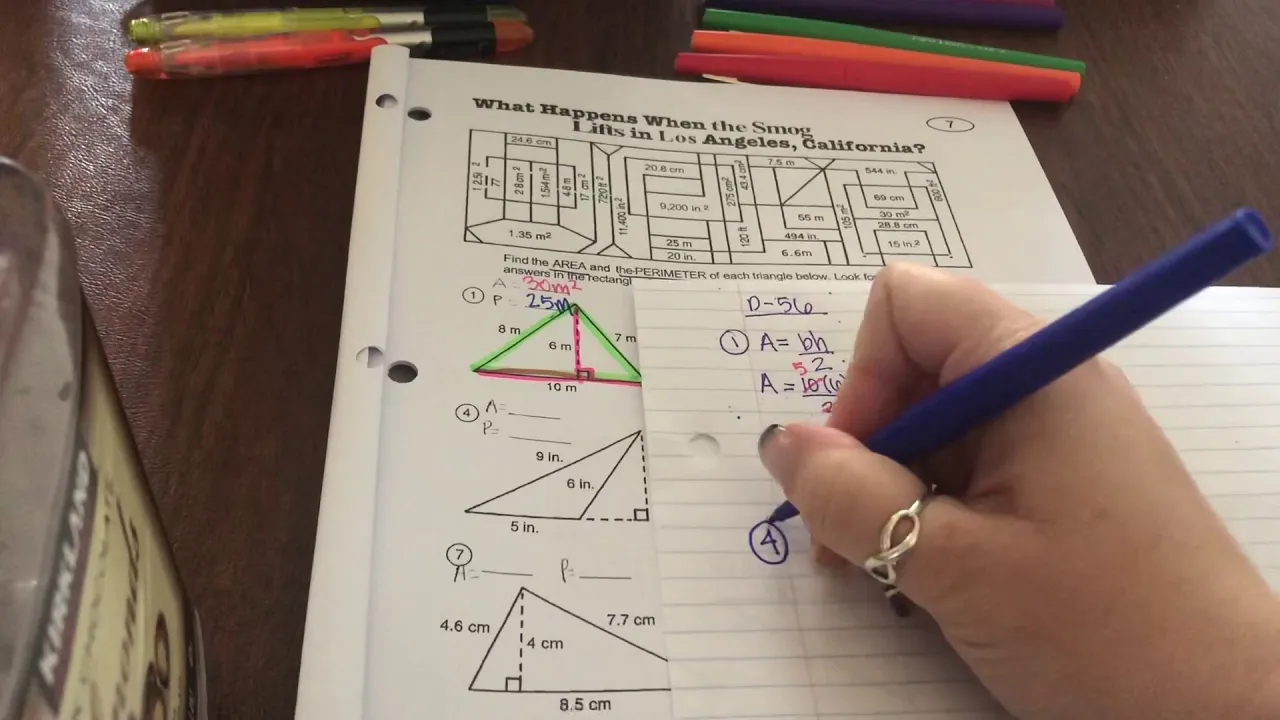 What Happens When the Smog
Lifts in Los Angeles, California?
7
24.6 cm
77
28 cm²
1.54 m²
4.8 m
17 cm²
1.35 m²
720 ft²
11,400 in.²
20.8 cm
9,200 in.²
25 m
20 in.
275 cm²
43.4 cm²
120 ft
7.5 m
55 m
494 in.
6.6m
105 m²
544 in.
69 cm
30 m²
28.8 cm
15 in.²
600 ft²
Find the AREA and the PERIMETER of each triangle below. Look
answers in the
1 A = 30m²
P = 25m
8 m
6 m
7 m
10 m
4 A= ____
P= ____
9 in.
6 in.
5 in.
7 A= ____ P= ____
4.6 cm
4 cm
7.7 cm
8.5 cm
D-56
1 A = bh
2
5
A = 10(6)
4
KIRKLAND